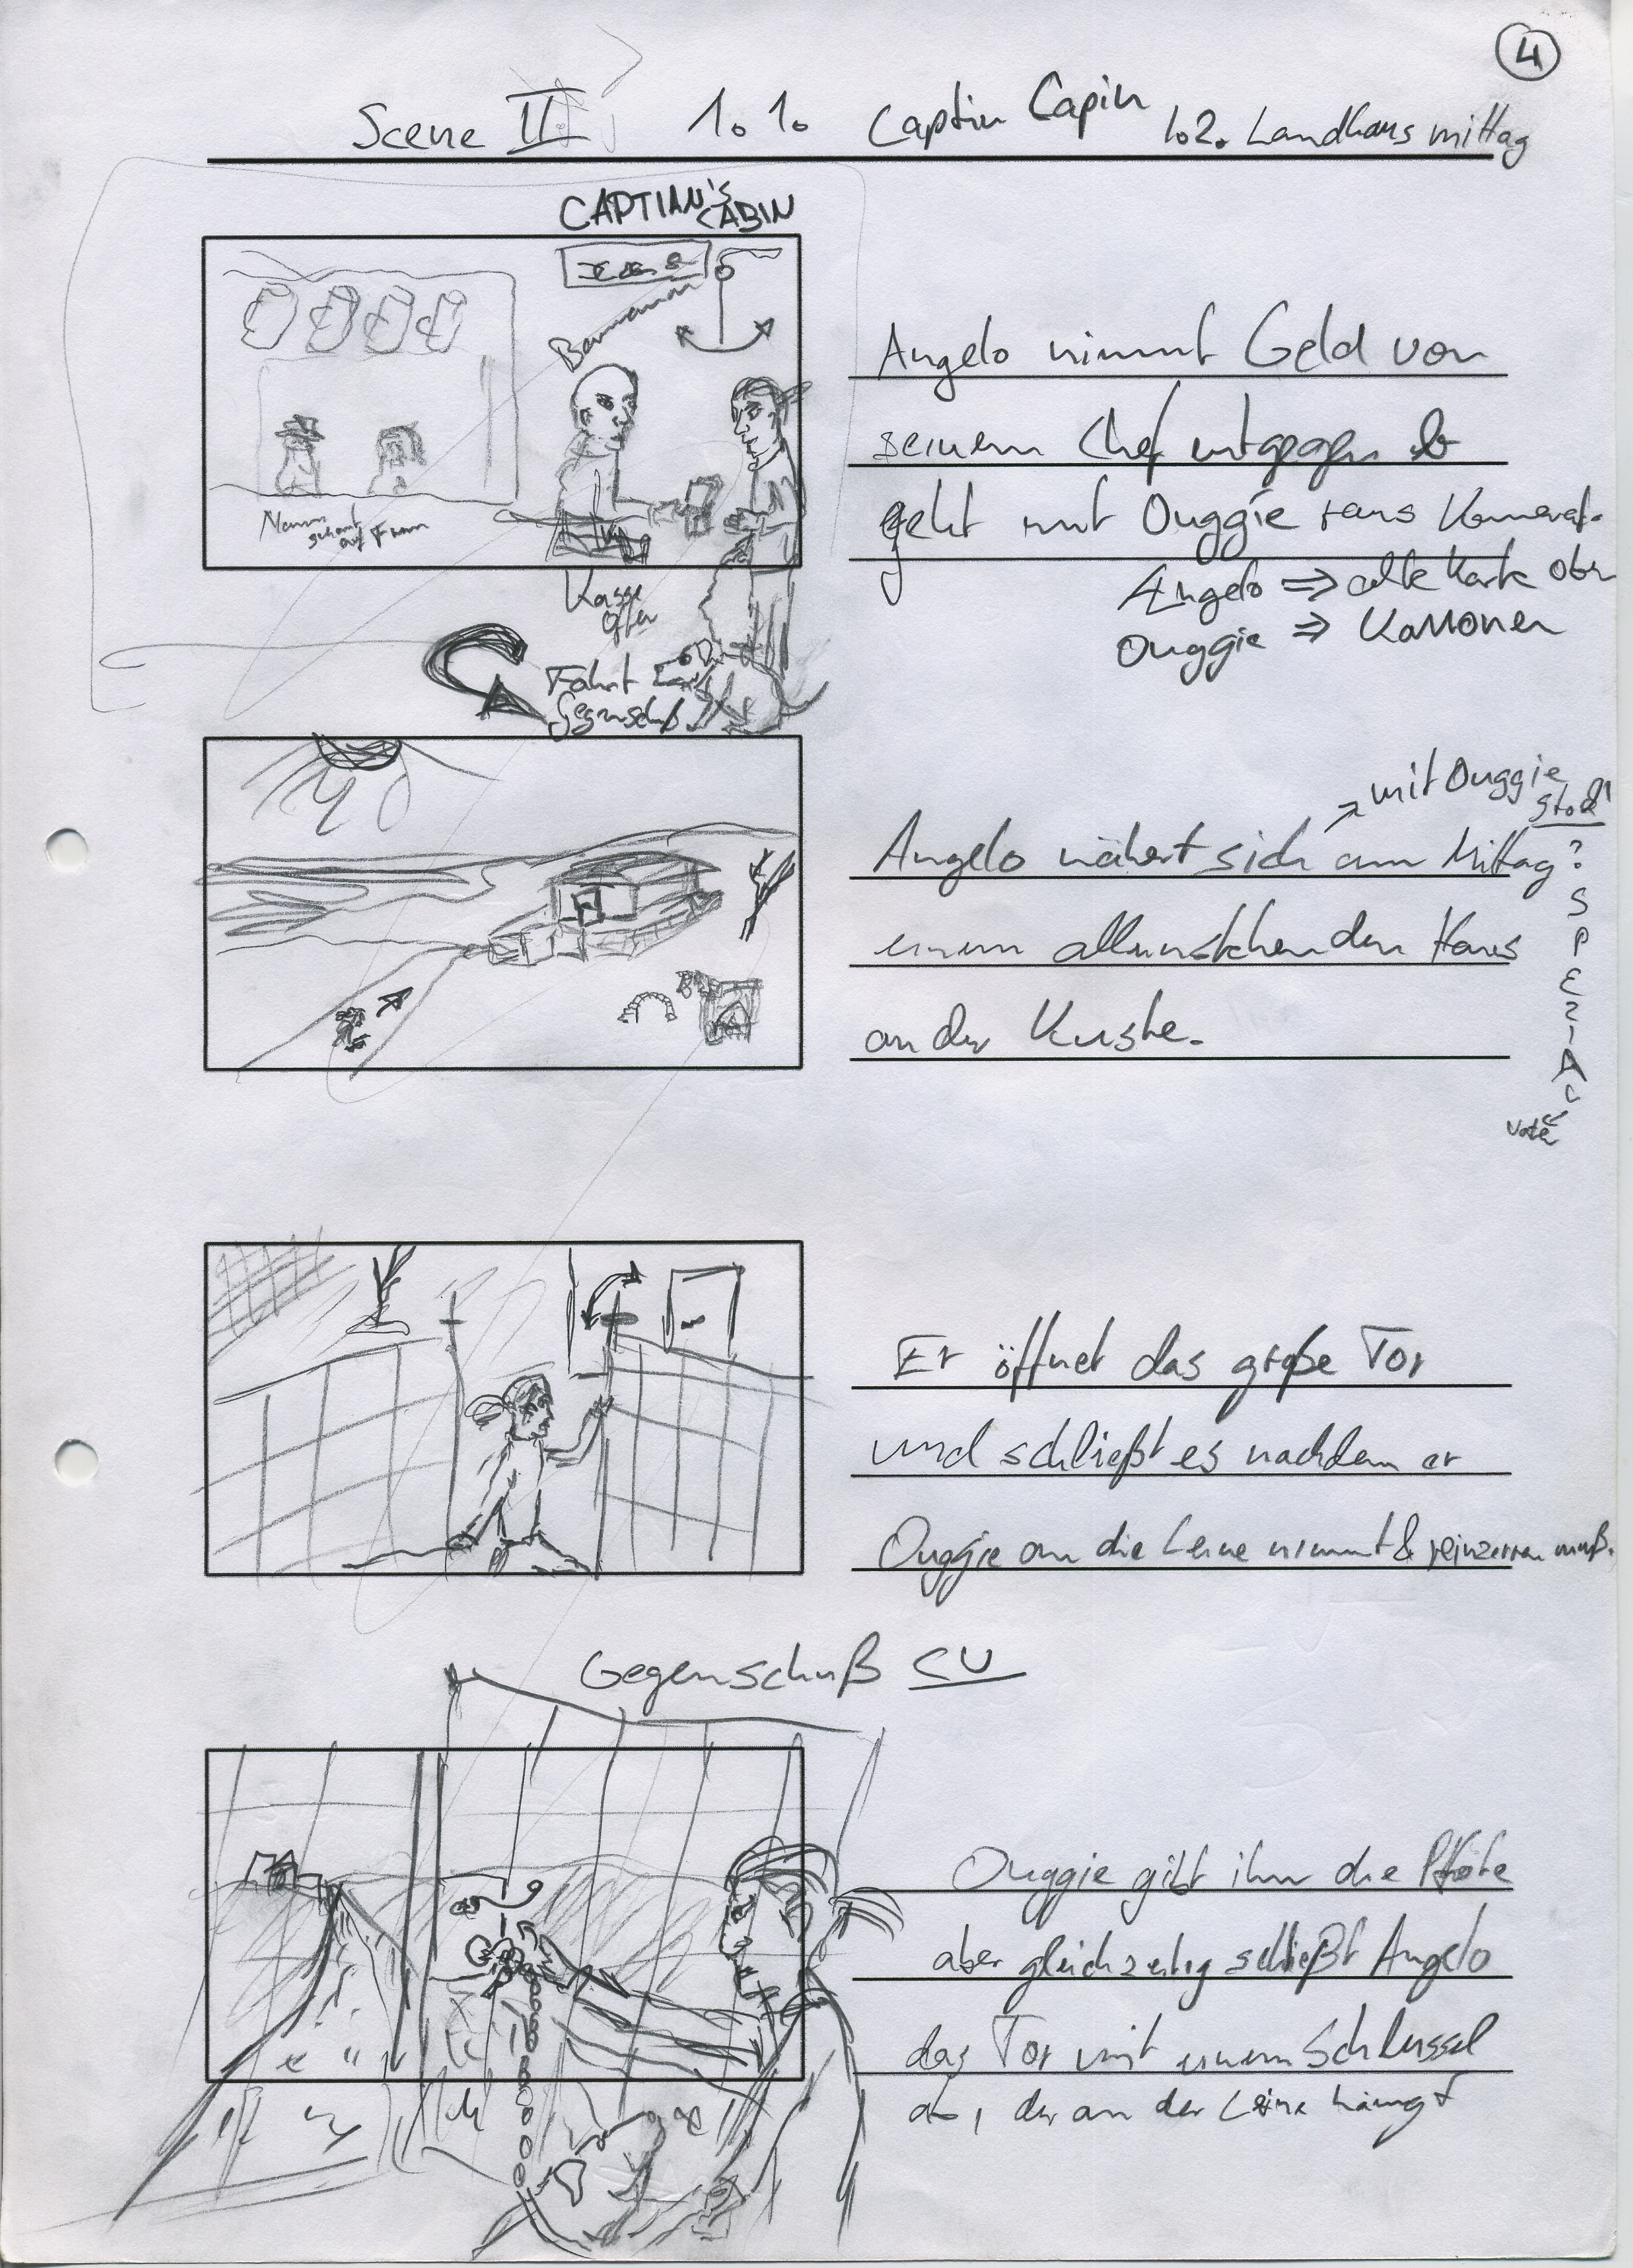 4
Scene II 1.1. Captin Capin 1.2. Landhaus mittag
CAPTIAN'S CABIN
Mann schaut auf Frau
Kasse offen
Fahrt
Gegenschuß
Angelo nimmt Geld von
seinem Chef entgegen &
geht mit Ouggie raus
Angelo ⇒ alte Karte
Ouggie ⇒ Kanonen
mit Ouggie
Angelo nähert sich am Mittag ?
einem alleinstehenden Haus
an der Kuste.
SPEZIAL
Er öffnet das große Tor
und schließt es nachdem er
Ouggie an die Leine nimmt & reinzerren muß.
Gegenschuß CU
Ouggie gibt ihm die Pfote
aber gleichzeitig schließt Angelo
das Tor mit einem Schlussel
ab, der an der Leine hängt